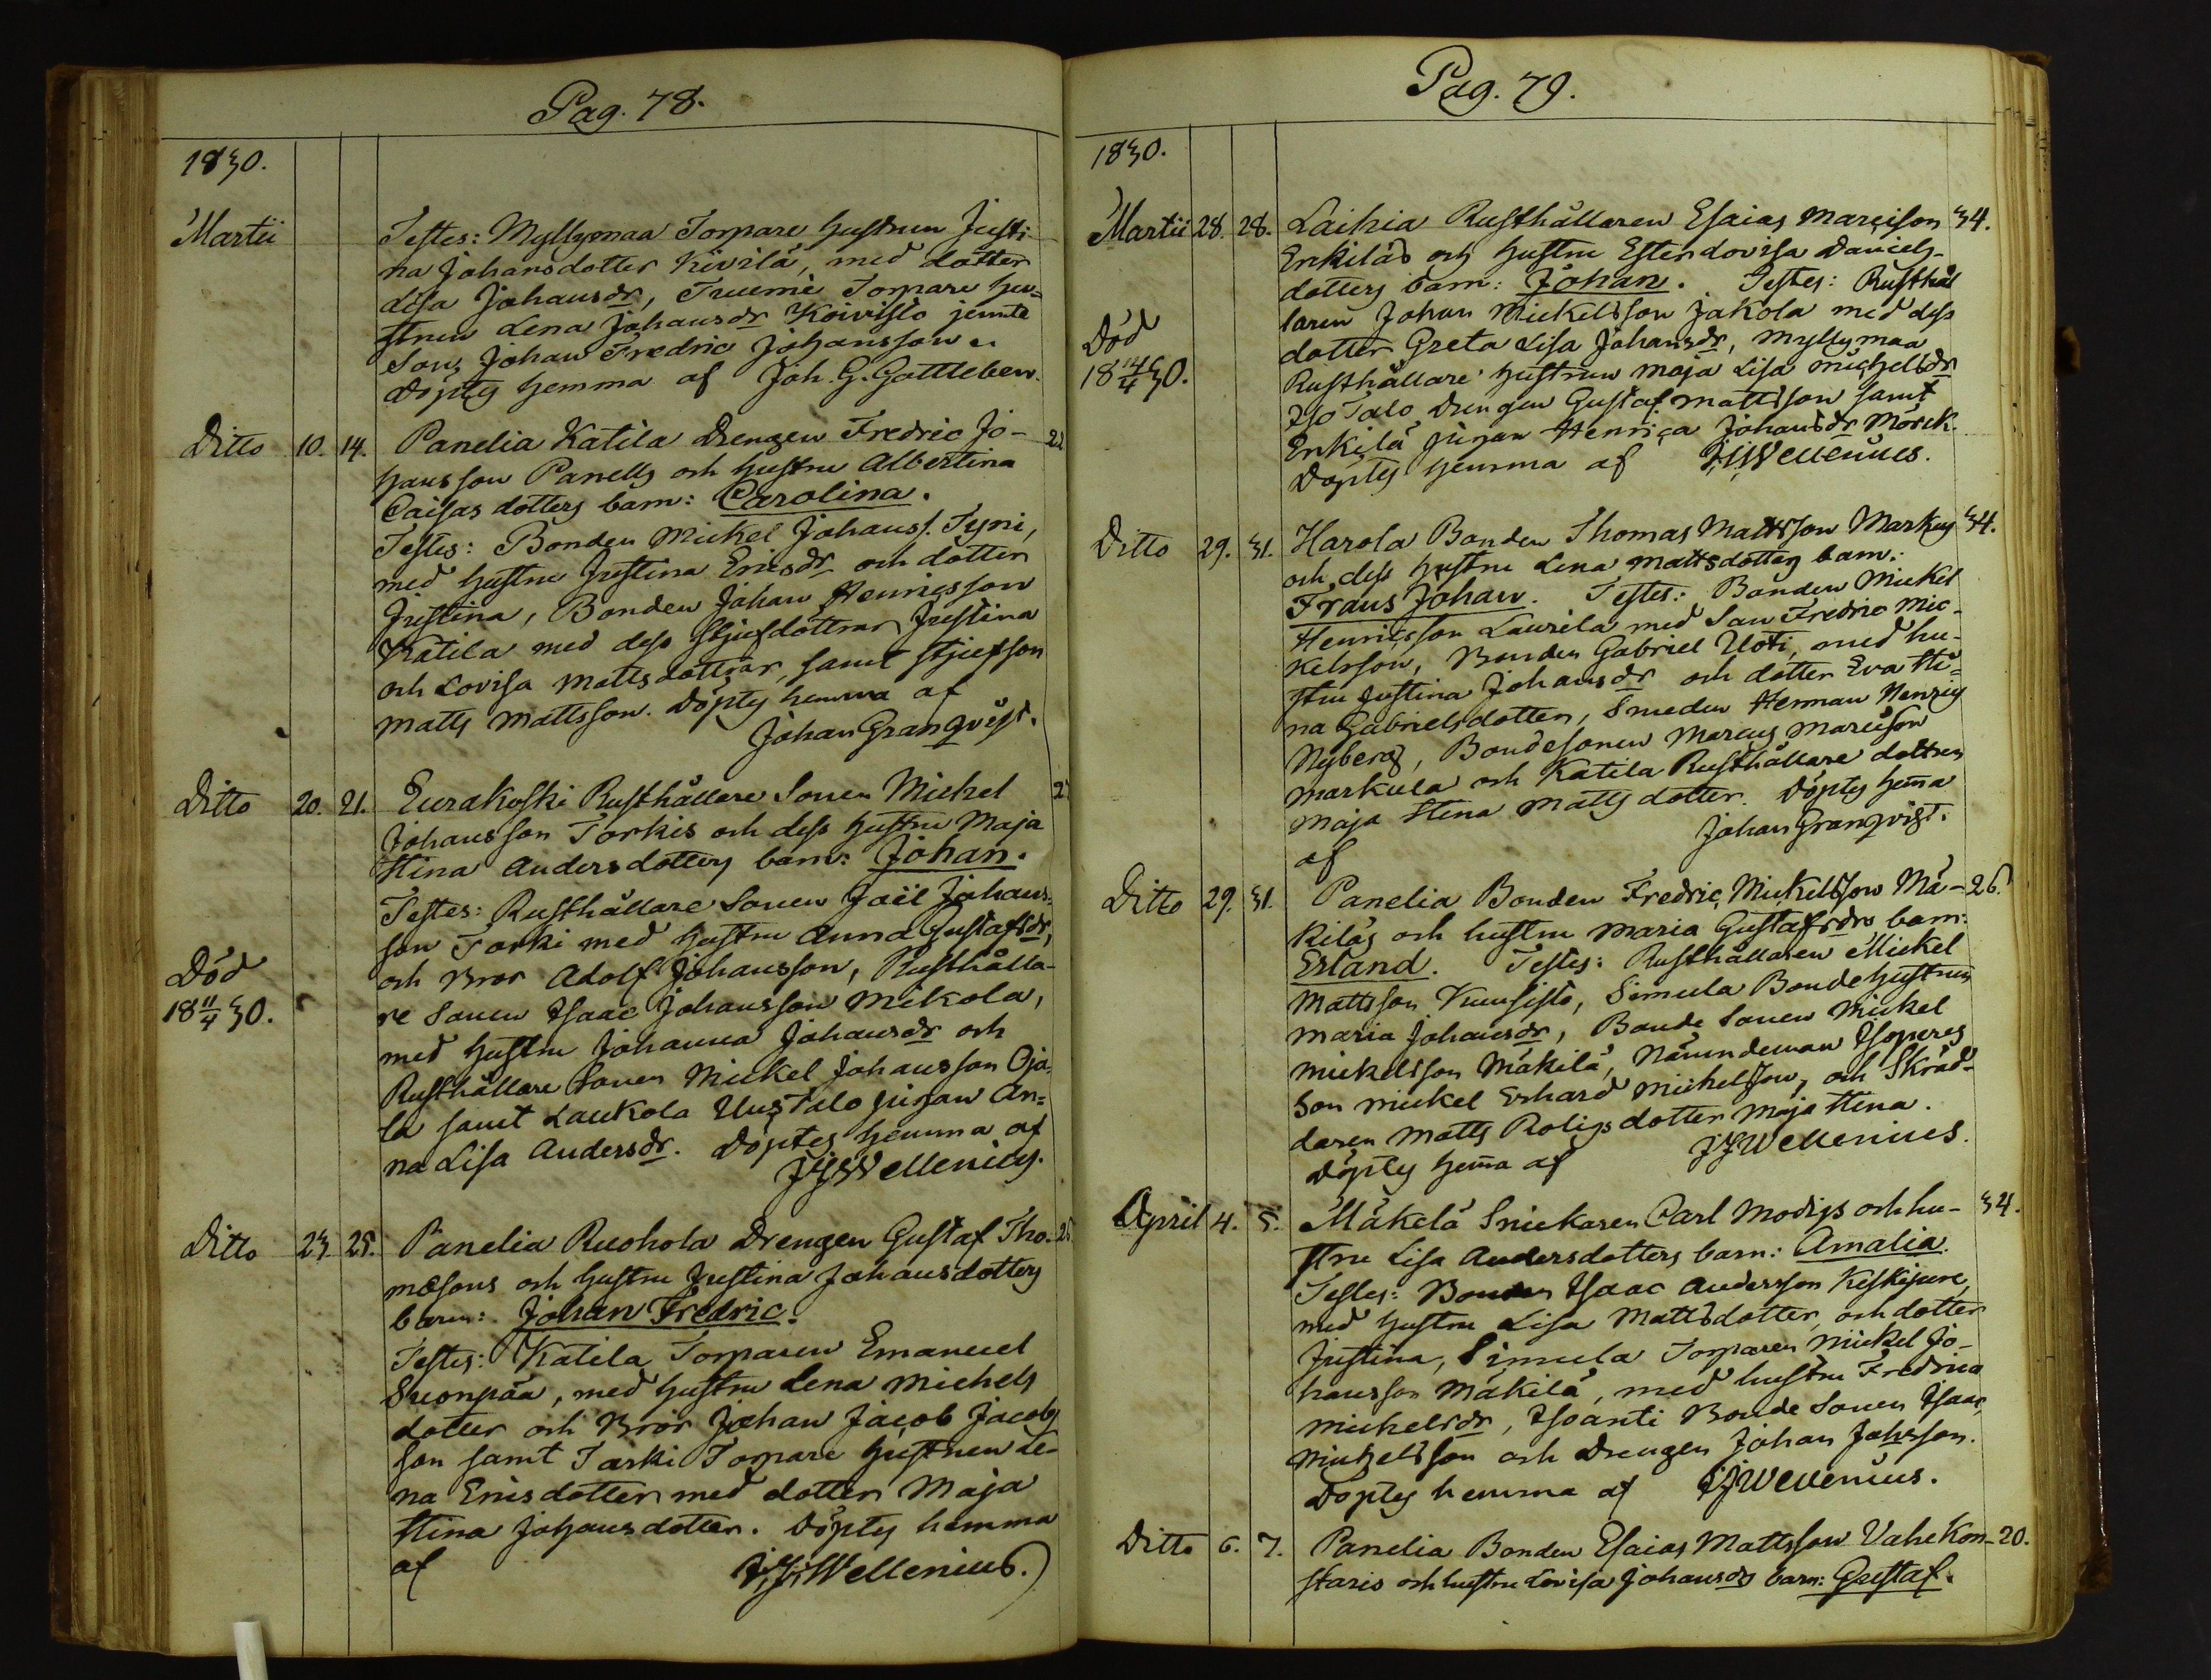 Pag. 78.
1830.
Martii
Testes: Myllymaa Torpare hustrun Justi-
na Johansdotter Kivilä, med dotter
Lisa Johansdr, Tuumé Torpare hu-
strun Lena Johansdr Koivisto jemte
Son, Johan Fredric Johansson.
Döptes hemma af Joh. G. Gottleben.
Ditto 10. 14. Panelia Katila Drengen Fredric Jo- 22
hansson Panells och hustru Albertina
Caisas dotters barn: Carolina.
Testes: Bonden Mickel Johanss. Tyni,
med hustru Justina Ericsdr och dotter
Justina, Bonden Johan Henricsson
Katila med dess Stjufdottrar Justina
och Lovisa Mattsdöttrar, samt stjufson
Matts Mattsson. Döptes hemma af
Johan Granqvist.
Ditto 20. 21. Eurakoski Rusthållare Sonen Michel
Johansson Torkis och dess hustru Maja
Stina Andersdotters barn: Johan.
Testes: Rusthållare Sonen Joël Johans-
son Torki med hustru Anna Gustafsdr,
och Bror Adolf Johansson, Rusthålla-
Död
18 11/4 30.
re Sonen Isaac Johansson Mikola,
med hustru Johanna Johansdr och
Rusthållare Sonen Mickel Johansson Oja-
la samt Laukola Uusitalo pigan An-
na Lisa Andersdr. Döptes hemma af
JJWellenius.
Ditto 23. 25. Panelia Ruohola Drengen Gustaf Tho- 25
mæsons och hustru Justina Johansdotters
barn: Johan Fredric.
Testes: Katila Torparen Emanuel
Suonpää, med hustru Lena Michels
dotter och Bror Johan Jacob Jacobs
son samt Torki Torpare hustrun Le-
na Ericsdotter med dotter Maja
Stina Johansdotter. Döptes hemma
af JJWellenius.
Pag. 79.
1830.
Martii 28. 28. Laihia Rusthållaren Esaias Marcison 34.
Enkiläs och hustru Ester Lovisa Daniels-
dotters barn: Johan. Testes: Rusthål
laren Johan Mickelsson Jakola med dess
Död
18 14/4 30.
dotter Greta Lisa Johansdr, Myllymaa
Rusthållare hustrun Maja Lisa Michelsdr
Iso Talo Drengen Gustaf Mattsson samt
Enkilä pigan Henrica Johansdr Mörck.
Döptes hemma af JJWellenius.
Ditto 29. 31. Harola Bonden Thomas Mattsson Markus 34.
och dess hustru Lena Mattsdotters barn:
Frans Johan. Testes: Bonden Mickel
Henricsson Laurila med Son Fredric Mic-
kelsson, Bonden Gabriel Uoti, med hu-
stru Justina Johansdr och dotter Eva Sti-
na Gabrielsdotter, Smeden Herman Henric
Nyberg, Bondesonen Marcus Marcison
Markula och Katila Rusthållare dottren
Maja Stina Matts dotter. Döptes hema
af Johan Granqvist.
Ditto 29. 31. Panelia Bonden Fredric Mickelsson Mä- 26.
kiläs och hustru Maria Gustafsdrs barn:
Erland. Testes: Rusthållaren Mickel
Mattsson Kuusisto, Simula Bonde hustrun
Maria Johansdr, Bonde Sonen Mickel
Mickelsson Mäkilä, Nämndeman Isoperes
Son Mickel Erhard Michelsson, och Skräd-
daren Matts Roligs dotter Maja Stina.
Döptes hema af JJWellenius.
April 4. 5. Mäkelä Snickaren Carl Modigs och hu- 34.
stru Lisa Andersdotters barn: Amalia.
Testes: Bonden Isaac Andersson Keskijure,
med hustru Lisa Mattsdotter, och dotter
Justina, Simula Torparen Mickel Jo-
hansson Mäkilä, med hustru Fredrica
Mickelsdr, Isoanti Bonde Sonen Isaac
Michelsson och Drengen Johan Johsson.
Döptes hemma af JJWellenius.
Ditto 6. 7. Panelia Bonden Esaias Mattsson Vahe Kon- 20.
staris och hustru Lovisa Johansdrs barn: Gustaf.